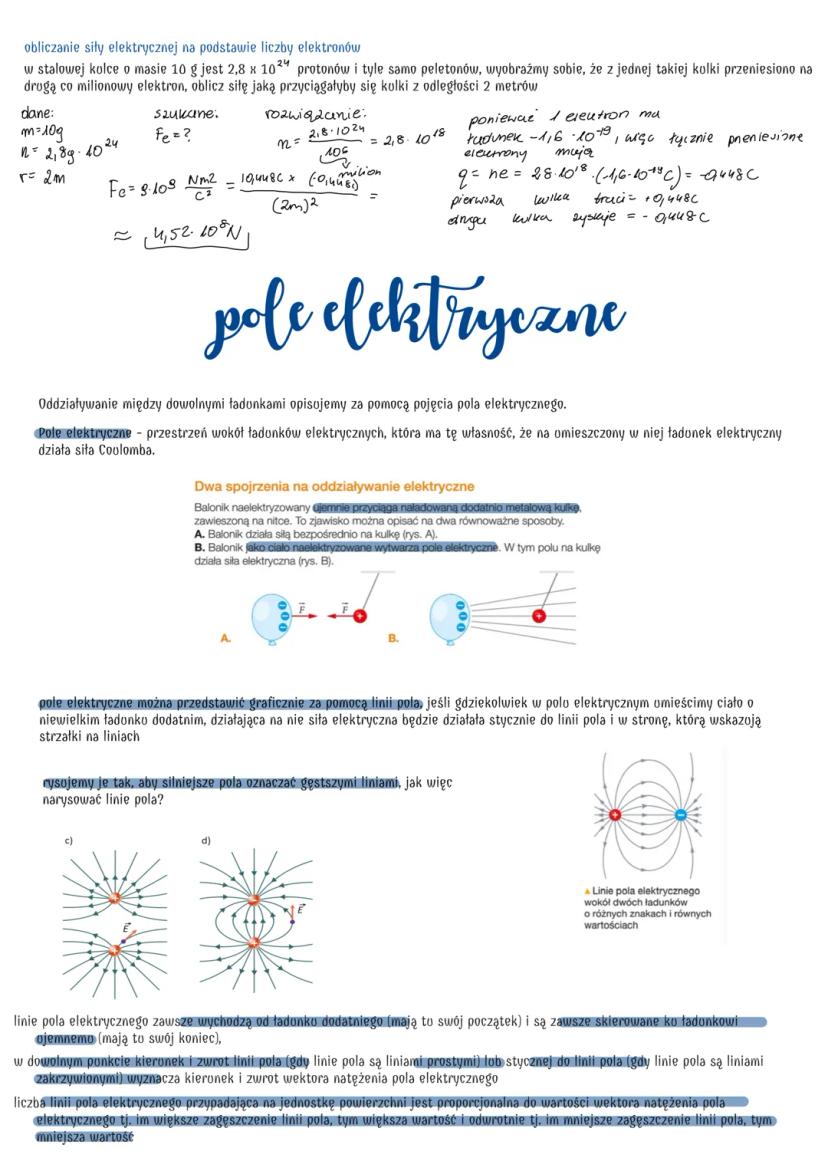 obliczanie siły elektrycznej na podstawie liczby elektronów
w stalowej kulce o masie 10 g jest 2,8 x 10²⁴ protonów i tyle samo peletonów, wyobraźmy sobie, że z jednej takiej kulki przeniesiono na
drugą co milionowy elektron, oblicz siłę jaką przyciągałyby się kulki z odległości 2 metrów
dane:
m=10g
n= 2,8g · 10²⁴
r= 2m
szukane:
Fe=?
rozwiązanie:
n= 2,8·10²⁴ / 10⁶ = 2,8 · 10¹⁸
milion
Fe= 9·10⁹ Nm2/C² = 10,448C x (-0,448C) / (2m)² =
≈ 4,52 · 10⁸N
ponieważ 1 elektron ma
ładunek -1,6 · 10⁻¹⁹, więc łącznie przeniesione
elektrony mają
q= ne = 28·10¹⁸·(-1,6·10⁻¹⁹C) = -0,448C
pierwsza kulka traci= +0,448C
druga kulka zyskuje = - 0,448C
pole elektryczne
Oddziaływanie między dowolnymi ładunkami opisujemy za pomocą pojęcia pola elektrycznego.
Pole elektryczne - przestrzeń wokół ładunków elektrycznych, która ma tę własność, że na umieszczony w niej ładunek elektryczny
działa siła Coulomba.
Dwa spojrzenia na oddziaływanie elektryczne
Balonik naelektryzowany ujemnie przyciąga naładowaną dodatnio metalową kulkę,
zawieszoną na nitce. To zjawisko można opisać na dwa równoważne sposoby.
A. Balonik działa siłą bezpośrednio na kulkę (rys. A).
B. Balonik jako ciało naelektryzowane wytwarza pole elektryczne. W tym polu na kulkę
działa siła elektryczna (rys. B).
F F
A. B.
pole elektryczne można przedstawić graficznie za pomocą linii pola, jeśli gdziekolwiek w polu elektrycznym umieścimy ciało o
niewielkim ładunku dodatnim, działająca na nie siła elektryczna będzie działała stycznie do linii pola i w stronę, którą wskazują
strzałki na liniach
rysujemy je tak, aby silniejsze pola oznaczać gęstszymi liniami, jak więc
narysować linie pola?
c) d)
E
E
▲ Linie pola elektrycznego
wokół dwóch ładunków
o różnych znakach i równych
wartościach
linie pola elektrycznego zawsze wychodzą od ładunku dodatniego (mają tu swój początek) i są zawsze skierowane ku ładunkowi
ujemnemu (mają tu swój koniec),
w dowolnym punkcie kierunek i zwrot linii pola (gdy linie pola są liniami prostymi) lub stycznej do linii pola (gdy linie pola są liniami
zakrzywionymi) wyznacza kierunek i zwrot wektora natężenia pola elektrycznego
liczba linii pola elektrycznego przypadająca na jednostkę powierzchni jest proporcjonalna do wartości wektora natężenia pola
elektrycznego tj. im większe zagęszczenie linii pola, tym większa wartość i odwrotnie tj. im mniejsze zagęszczenie linii pola, tym
mniejsza wartość